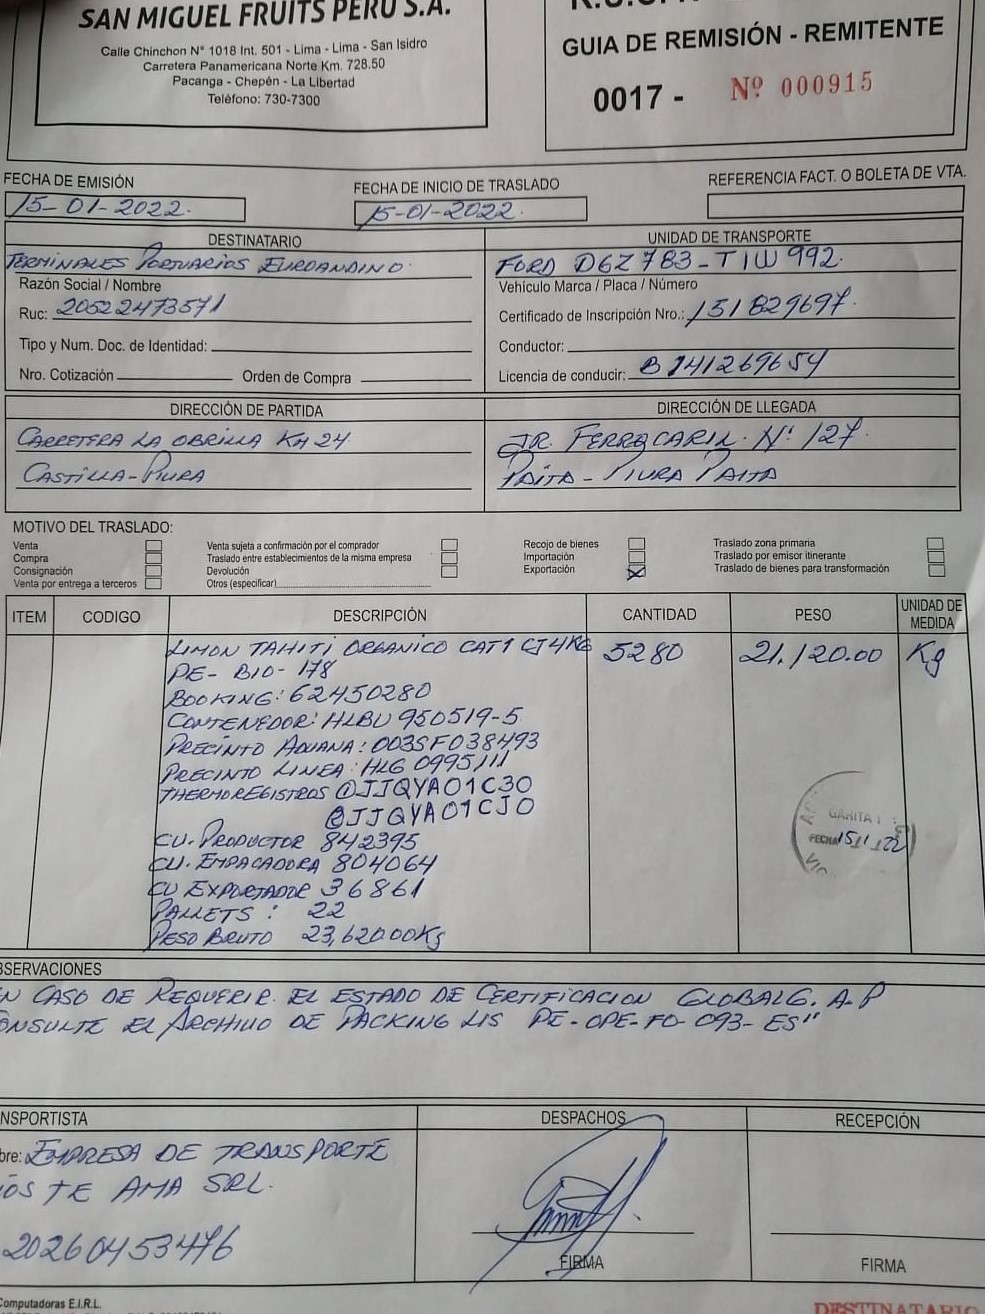 SAN MIGUEL FRUITS PERÚ S.A.
Calle Chinchon N° 1018 Int. 501 - Lima - Lima - San Isidro
Carretera Panamericana Norte Km. 728.50
Pacanga - Chepén - La Libertad
Teléfono: 730-7300
GUIA DE REMISIÓN - REMITENTE
0017 - Nº 000915
FECHA DE EMISIÓN
15-01-2022.
FECHA DE INICIO DE TRASLADO
15-01-2022.
REFERENCIA FACT. O BOLETA DE VTA.
DESTINATARIO
TERMINALES PORTUARIOS EUROANDINO.
Razón Social / Nombre
Ruc: 20522473571
Tipo y Num. Doc. de Identidad:
Nro. Cotización Orden de Compra
UNIDAD DE TRANSPORTE
FORD D6Z783-TIW992.
Vehículo Marca / Placa / Número
Certificado de Inscripción Nro.: 151829697.
Conductor:
Licencia de conducir: B741269654
DIRECCIÓN DE PARTIDA
CARRETERA LA OBRILLA KM 24
CASTILLA-PIURA
DIRECCIÓN DE LLEGADA
JR. FERROCARIL. Nº 127.
PAITA - PIURA PAITA
MOTIVO DEL TRASLADO:
Venta
Compra
Consignación
Venta por entrega a terceros
Venta sujeta a confirmación por el comprador
Traslado entre establecimientos de la misma empresa
Devolución
Otros (especificar)
Recojo de bienes
Importación
Exportación
Traslado zona primaria
Traslado por emisor itinerante
Traslado de bienes para transformación
ITEM CODIGO DESCRIPCIÓN CANTIDAD PESO UNIDAD DE MEDIDA
LIMON TAHITI ORGANICO CAT1 CJ4KG 5280 21,120.00 Kg
PE-BIO-178
BOOKING: 62450280
CONTENEDOR: HLBU 950519-5
PRECINTO ADUANA: 003SF038493
PRECINTO LINEA: HLG 0995111
THERMOREGISTROS @JJQYA01C30
@JJQYA01CJ0
CU. PRODUCTOR 842395
CU. EMPACADORA 804064
CU EXPORTADOR 36861
PALLETS: 22
PESO BRUTO 23,620.00Kg
GARITA 1
FECHA 15/1/22
BSERVACIONES
N CASO DE REQUERIR EL ESTADO DE CERTIFICACION GLOBALG.A.P
ONSULTE EL ARCHIVO DE PACKING LIS PE-OPE-FO-093-ES"
NSPORTISTA
bre: EMPRESA DE TRANSPORTE
IOS TE AMA SRL.
20260453476
DESPACHOS
FIRMA
RECEPCIÓN
FIRMA
Computadoras E.I.R.L.
DESTINATARIO